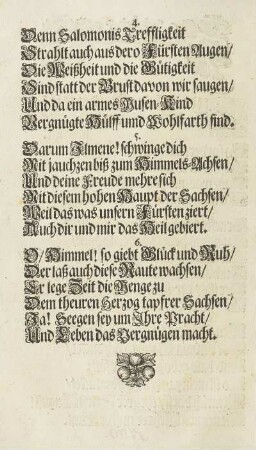 4.
Denn Salomonis Treffligkeit
Strahlt auch aus dero Fürsten Augen/
Die Weißheit und die Gütigkeit
Sind statt der Brust davon wir saugen/
Und da ein armes Musen-Kind
Vergnügte Hülff und Wohlfarth find.
5.
Darum Ilmene! schwinge dich
Mit jauchzen biß zum Himmels-Achsen/
Und deine Freude mehre sich
Mit diesem hohen Haupt der Sachsen/
Weil das was unsern Fürsten ziert/
Auch dir und mir das Heil gebiert.
6.
O/ Himmel! so giebt Glück und Ruh/
Der laß auch diese Raute wachsen/
Er lege Zeit die Menge zu
Dem theuren Hertzog tapfrer Sachsen/
Ja! Seegen sey um Ihre Pracht/
Und Leben das Vergnügen macht.